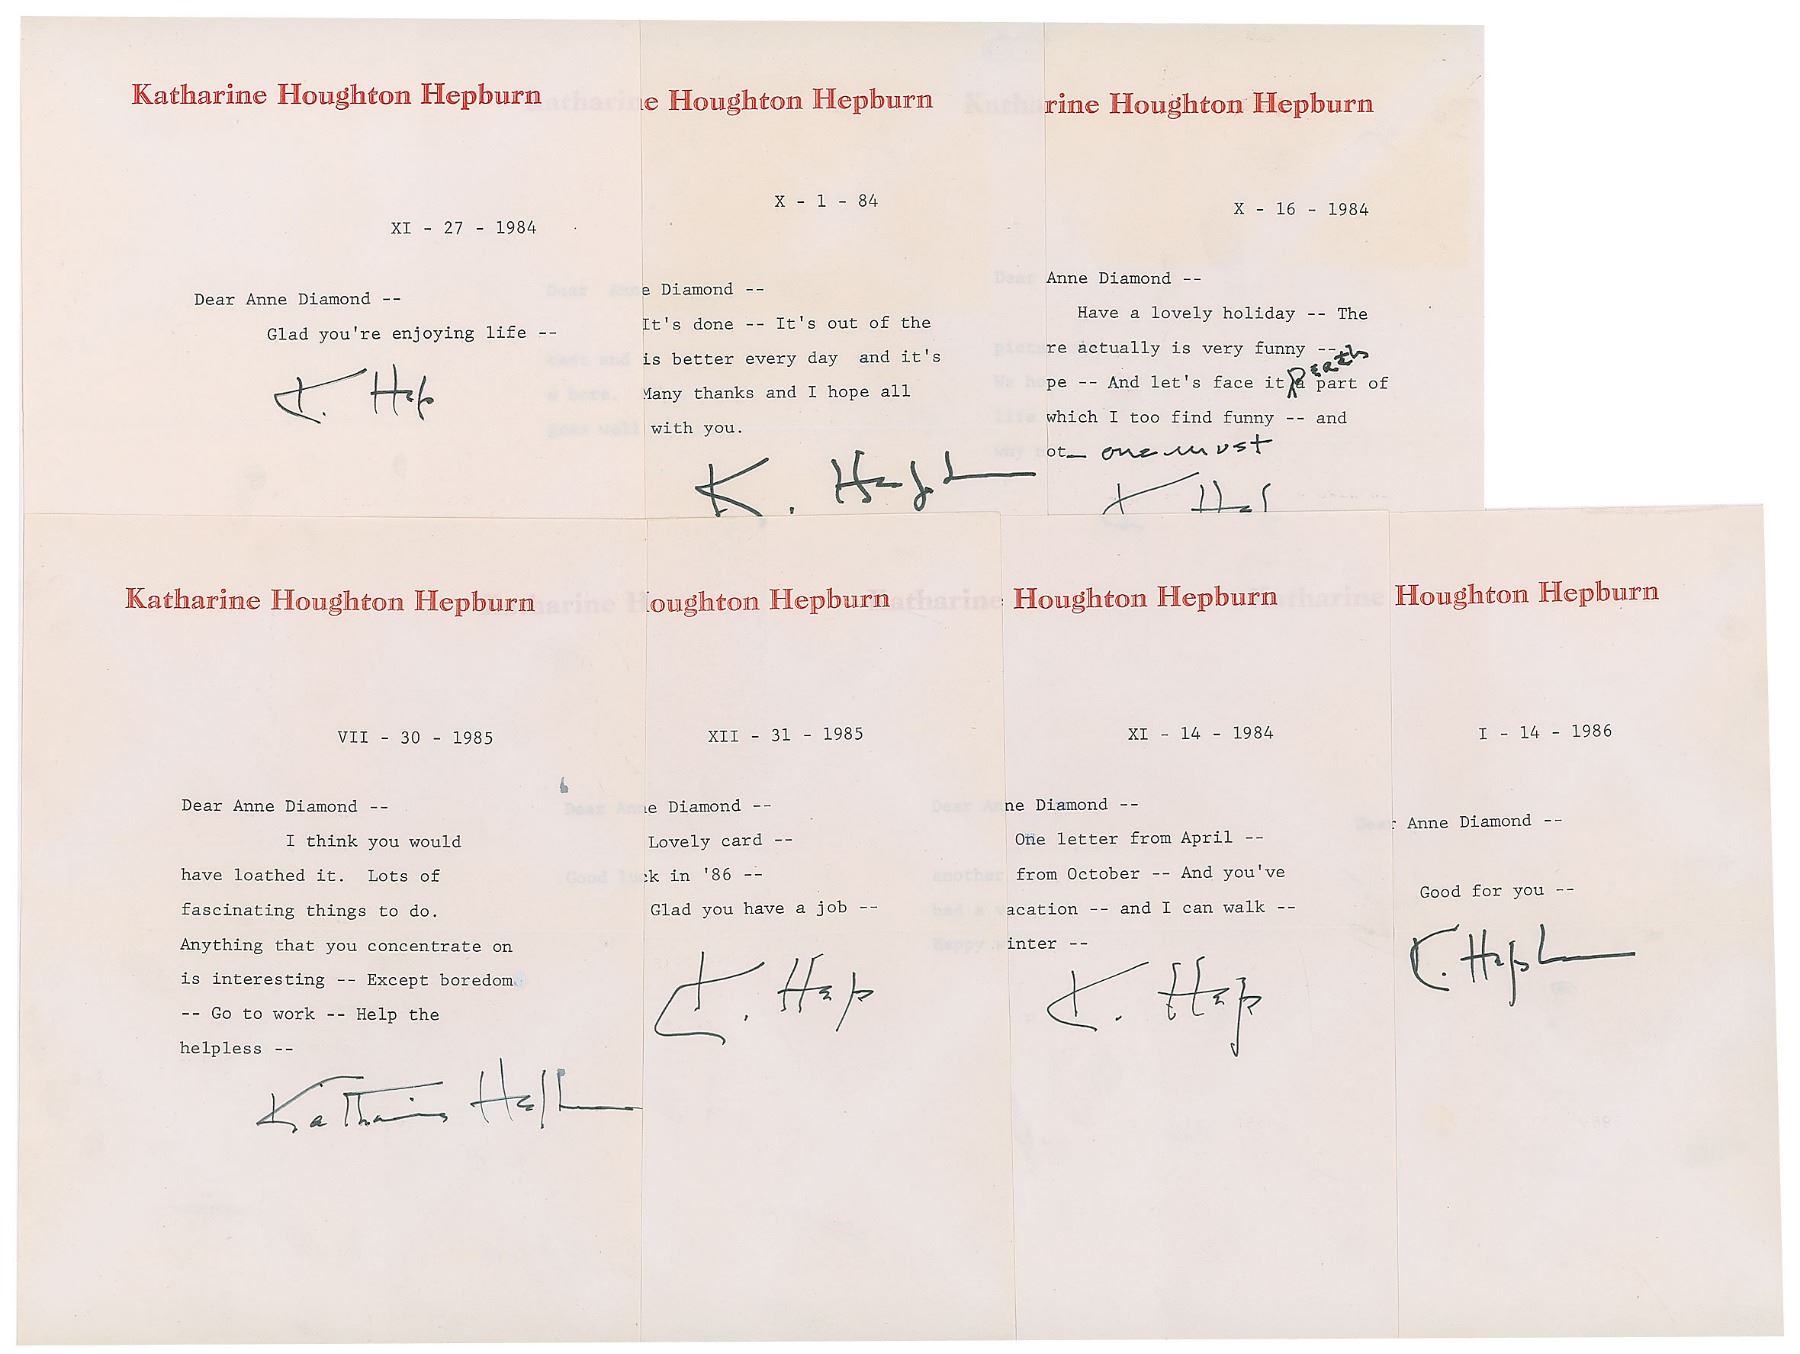 Katharine Houghton Hepburn
XI - 27 - 1984
Dear Anne Diamond --
Glad you're enjoying life --
K. Hep
Houghton Hepburn
X - 1 - 84
Diamond --
It's done -- It's out of the
cast and is better every day and it's
Many thanks and I hope all
goes well with you.
K. Hepburn
Katharine Houghton Hepburn
X - 16 - 1984
Dear Anne Diamond --
Have a lovely holiday -- The
picture actually is very funny --
We hope -- And let's face it part of
life which I too find funny -- and
why not_ one must
K. Hep
Katharine Houghton Hepburn
VII - 30 - 1985
Dear Anne Diamond --
I think you would
have loathed it. Lots of
fascinating things to do.
Anything that you concentrate on
is interesting -- Except boredom
-- Go to work -- Help the
helpless --
Katharine Hepburn
Houghton Hepburn
XII - 31 - 1985
Dear Anne Diamond --
Lovely card --
Good luck in '86 --
Glad you have a job --
K. Hep
Katharine Houghton Hepburn
XI - 14 - 1984
Dear Anne Diamond --
One letter from April --
another from October -- And you've
had a vacation -- and I can walk --
Happy winter --
K. Hep
Katharine Houghton Hepburn
I - 14 - 1986
Dear Anne Diamond --
Good for you --
K. Hepburn